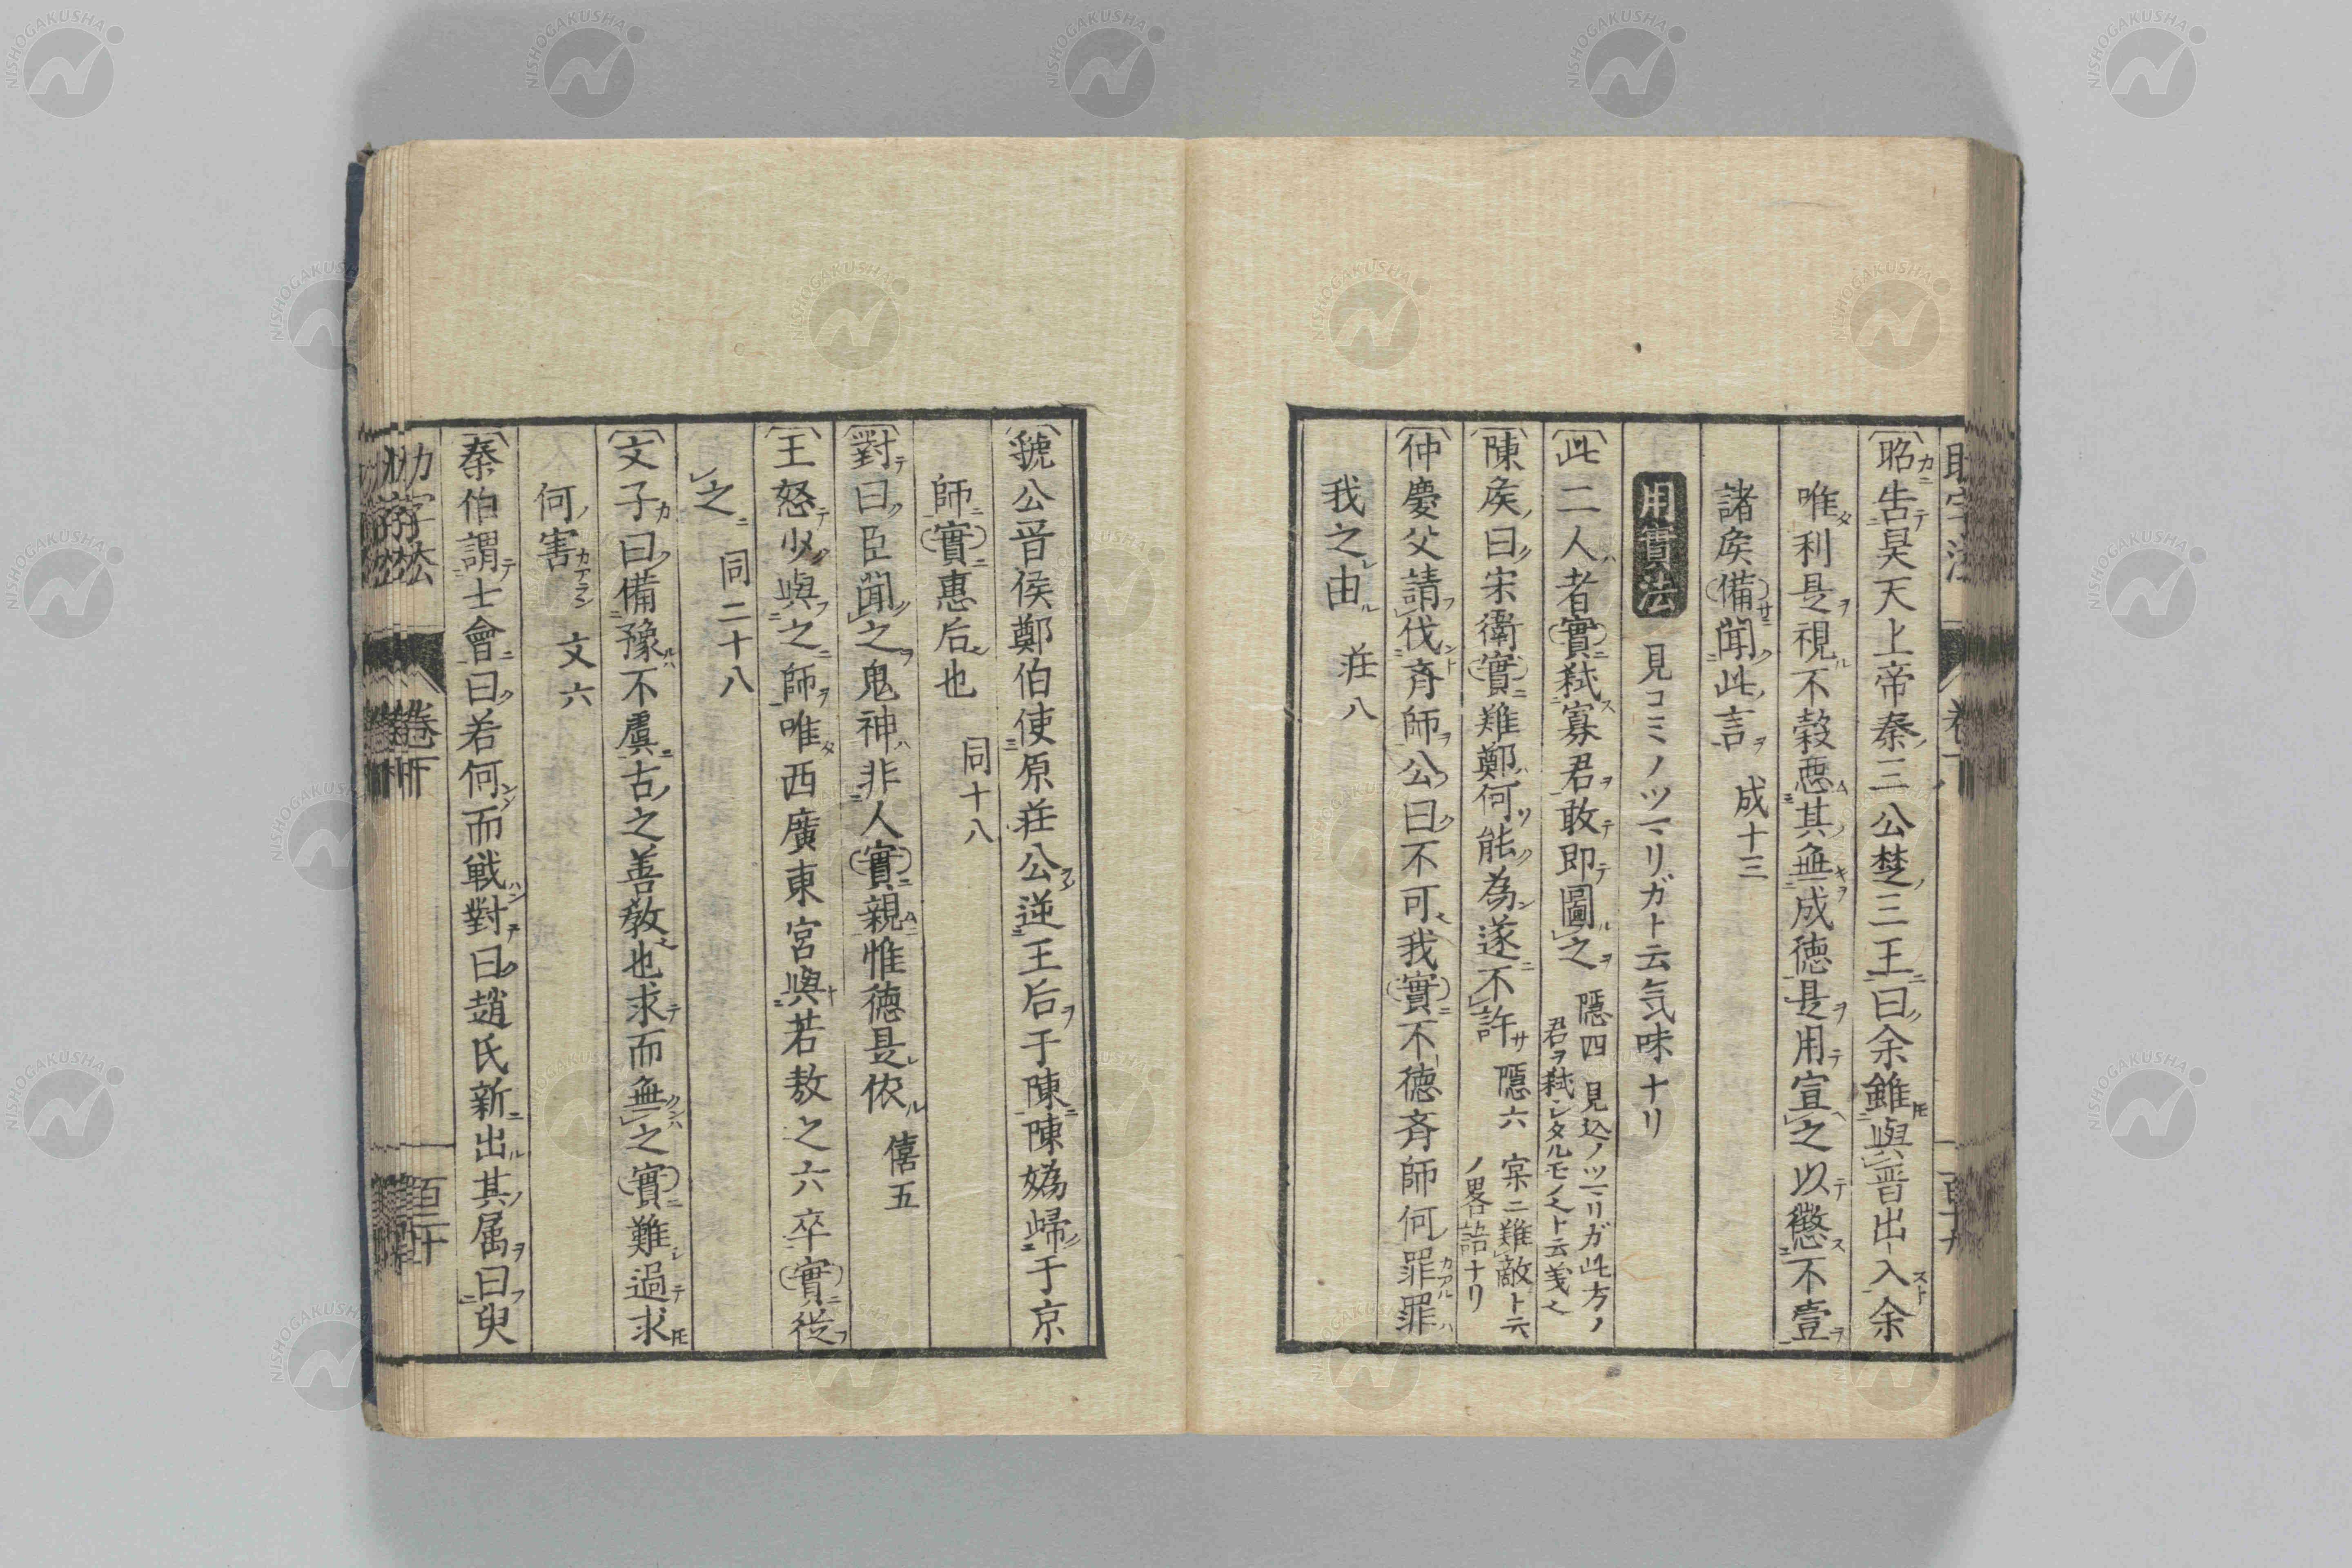 昭告昊天上帝秦三公楚三王曰余雖與晋出入余
唯利是視不穀惡其無成徳是用宣之以懲不壹
諸矦備聞此言 成十三
用實法 見コミノツマリガト云気味ナリ
此二人者實弑寡君敢即圖之 隱四 見込ノツマリガ此方ノ
君ヲ弑シタルモノ也ト云義也
陳矦曰宋衛實難鄭何能為遂不許 隱六 宲ニ難敵ト云
ノ畧語ナリ
仲慶父請伐斉師公曰不可我實不徳斉師何罪罪
我之由 荘八
虢公晋侯鄭伯使原荘公逆王后于陳陳嬀歸于京
師實惠后也 同十八
對曰臣聞之鬼神非人實親惟徳是依 僖五
王怒少與之師唯西廣東宮與若敖之六卒實從
之 同二十八
文子曰備豫不虞古之善教也求而無之實難過求
何害 文六
秦伯謂士會曰若何而戰對曰趙氏新出其属曰臾
卷下
百二十
NISHOGAKUSHA